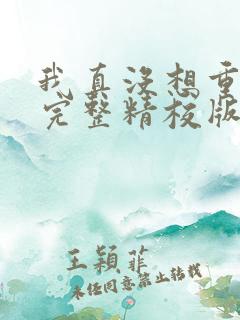 我真没想重
完整精校版
王颖菲
未经同意禁止转载